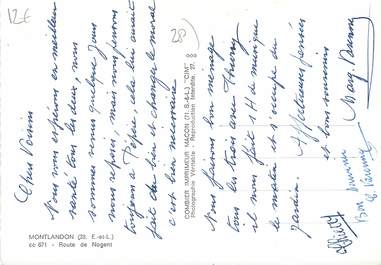 12€
28)
Chers Voisins
Nous vous espérons en meilleure
santé tous les deux, nous
sommes venus quelques jours
nous reposer, mais nous pensons
toujours à Pépée, cela lui aurait
fait du bien et changer le moral
c'est bien nécessaire
MONTLANDON (28. E.-et-L.)
cc 671 - Route de Nogent
COMBIER IMPRIMEUR MACON (71. S.-&-L.) "CIM"
Photographie Véritable - Reproduction Interdite, 27.
Nous faisons bon ménage
tous les trois avec Thierry
il nous fait 1H de musique
le matin et s'occupe du
Jardin. Affectueuses pensées
et bons souvenirs
Marg.
Thierry
Bon souvenir